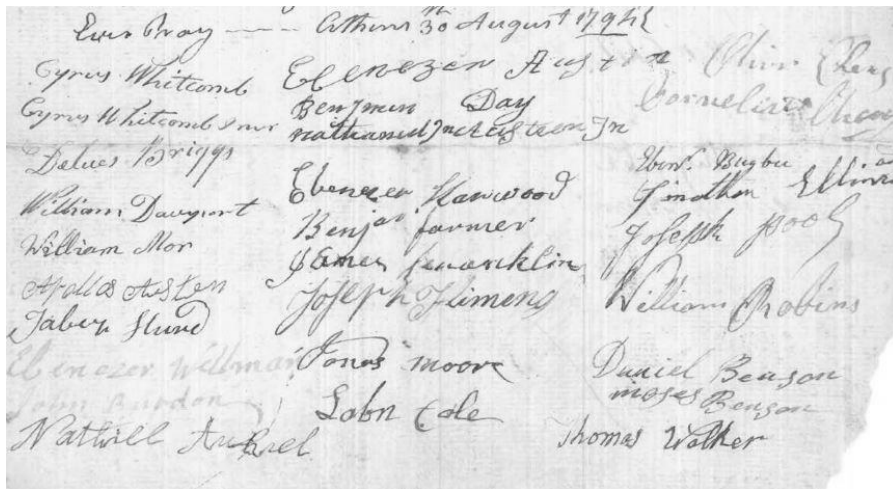 Athens 30th August 1794
Cyrus Whitcomb
Cyrus Whitcomb Junr
Briggs
William Davenport
William Mor
Apollos Austen
Taber Hurd
Ebenezer Wellman
John Burdon
Nathll
Ebenezer Austin
Benjmin Day
Ebenezer Harwood
Benjan farmer
James franklin
Joseph Flimeng
Jonas moore
Cole
Oliver
Cornelius
Ebenr Bugbe
Joseph pool
William Robins
Daniel Benson
moses Benson
Thomas Walker